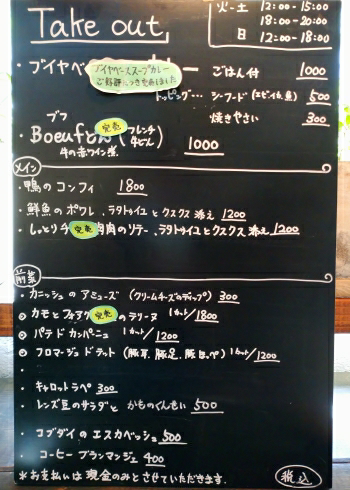 Take out
火-土 12:00-15:00
18:00-20:00
日 12:00-18:00
・ブイヤベ
ブイヤベーススープカレー
ご好評につき
ー ごはん付 1000
トッピング… シーフード 500
焼きやさい 300
ブフ
・Boeufどん (フレンチ牛どん) 1000
完売
牛の赤ワイン煮
メイン
・鴨のコンフィ 1800
・鮮魚のポワレ、ラタトゥイユとクスクス添え 1200
・しっとりチ 完売 肉のソテー、ラタトゥイユとクスクス添え 1200
前菜
・カニッシュのアミューズ (クリームチーズのディップ) 300
カモとフォアグ 完売 のテリーヌ 1カット/1800
パテドカンパーニュ 1カット/1200
フロマージュドテット (豚耳、豚足、豚ほほ) 1カット/1200
・
・キャロットラペ 300
・レンズ豆のサラダと かものくんせい 500
・コブダイのエスカベッシュ 500
・コーヒーブランマンジェ 400
※お支払いは現金のみとさせていただきます。
税込